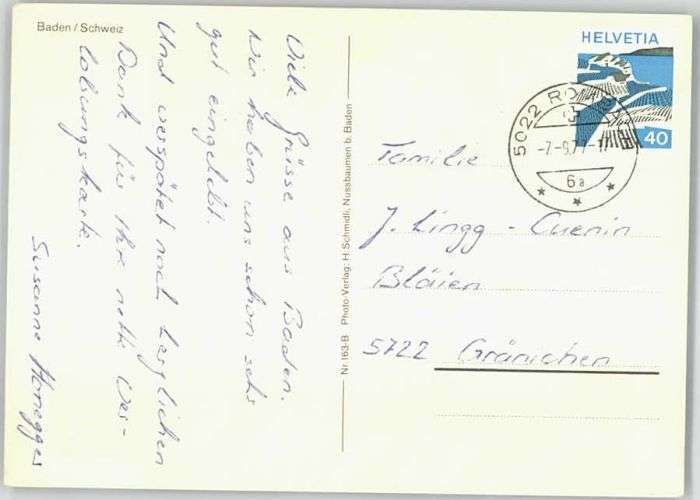 Baden / Schweiz
Viele Grüsse aus Baden.
Wir haben uns schon sehr
gut eingelebt.
Und verspätet noch herzlichen
Dank für Ihre nette Ver-
lobungskarte.
Susanne Honegger
Nr. 163-B Photo-Verlag: H. Schmidli, Nussbaumen b. Baden
HELVETIA
40
5022
-7.-9.7
6a
Familie
J. Lingg - Cuenin
Bläien
5722 Gränichen